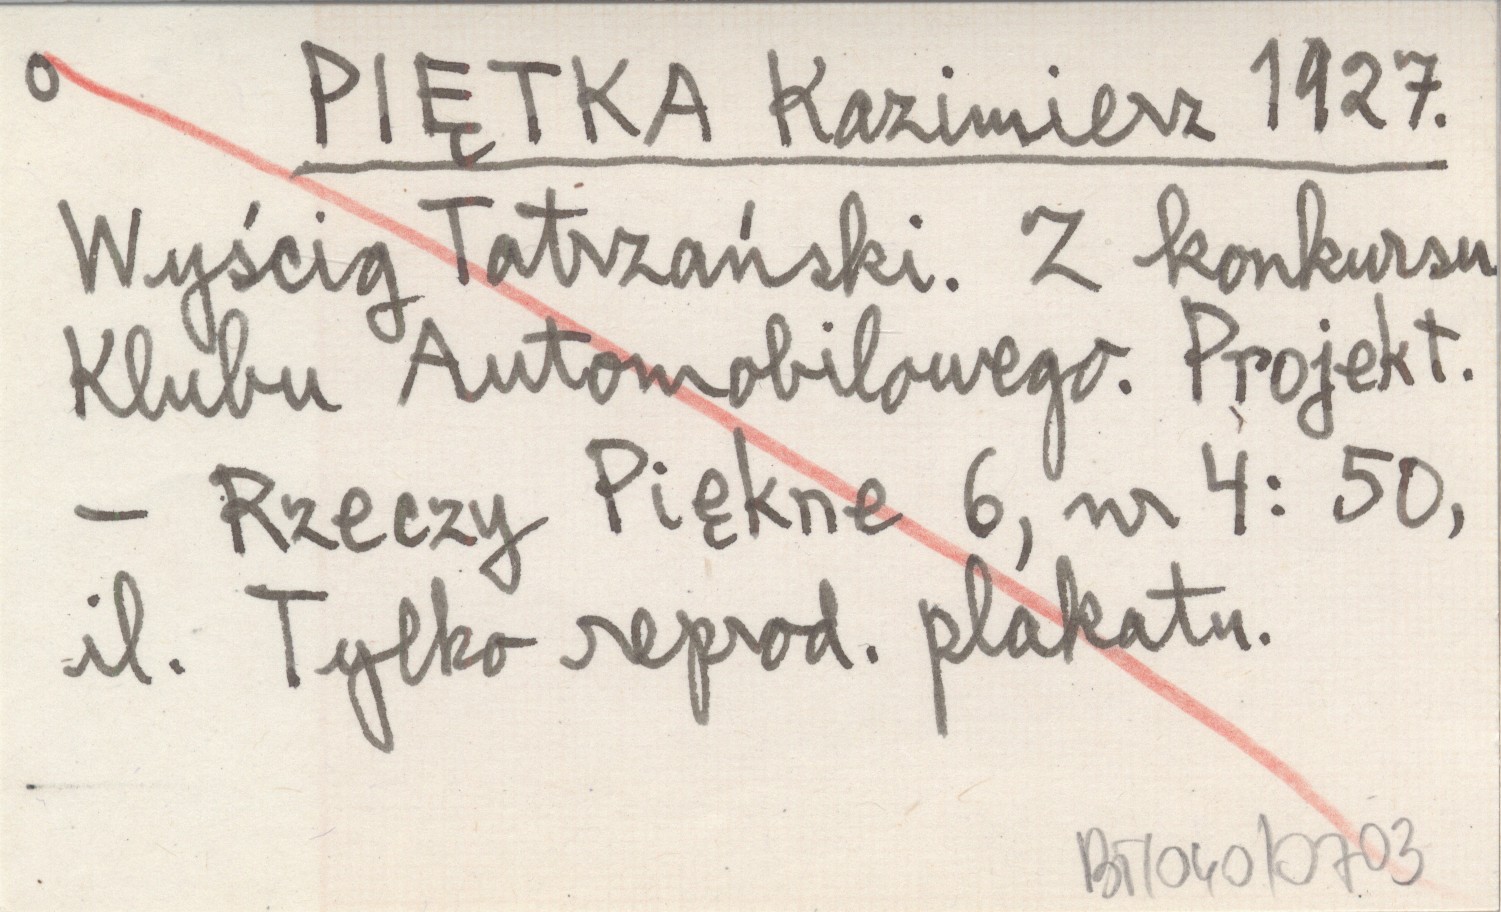 o PIĘTKA Kazimierz 1927.
Wyścig Tatrzański. Z konkursu
Klubu Automobilowego. Projekt.
– Rzeczy Piękne 6, nr 4: 50,
il. Tylko reprod. plakatu.
BT/040/0703